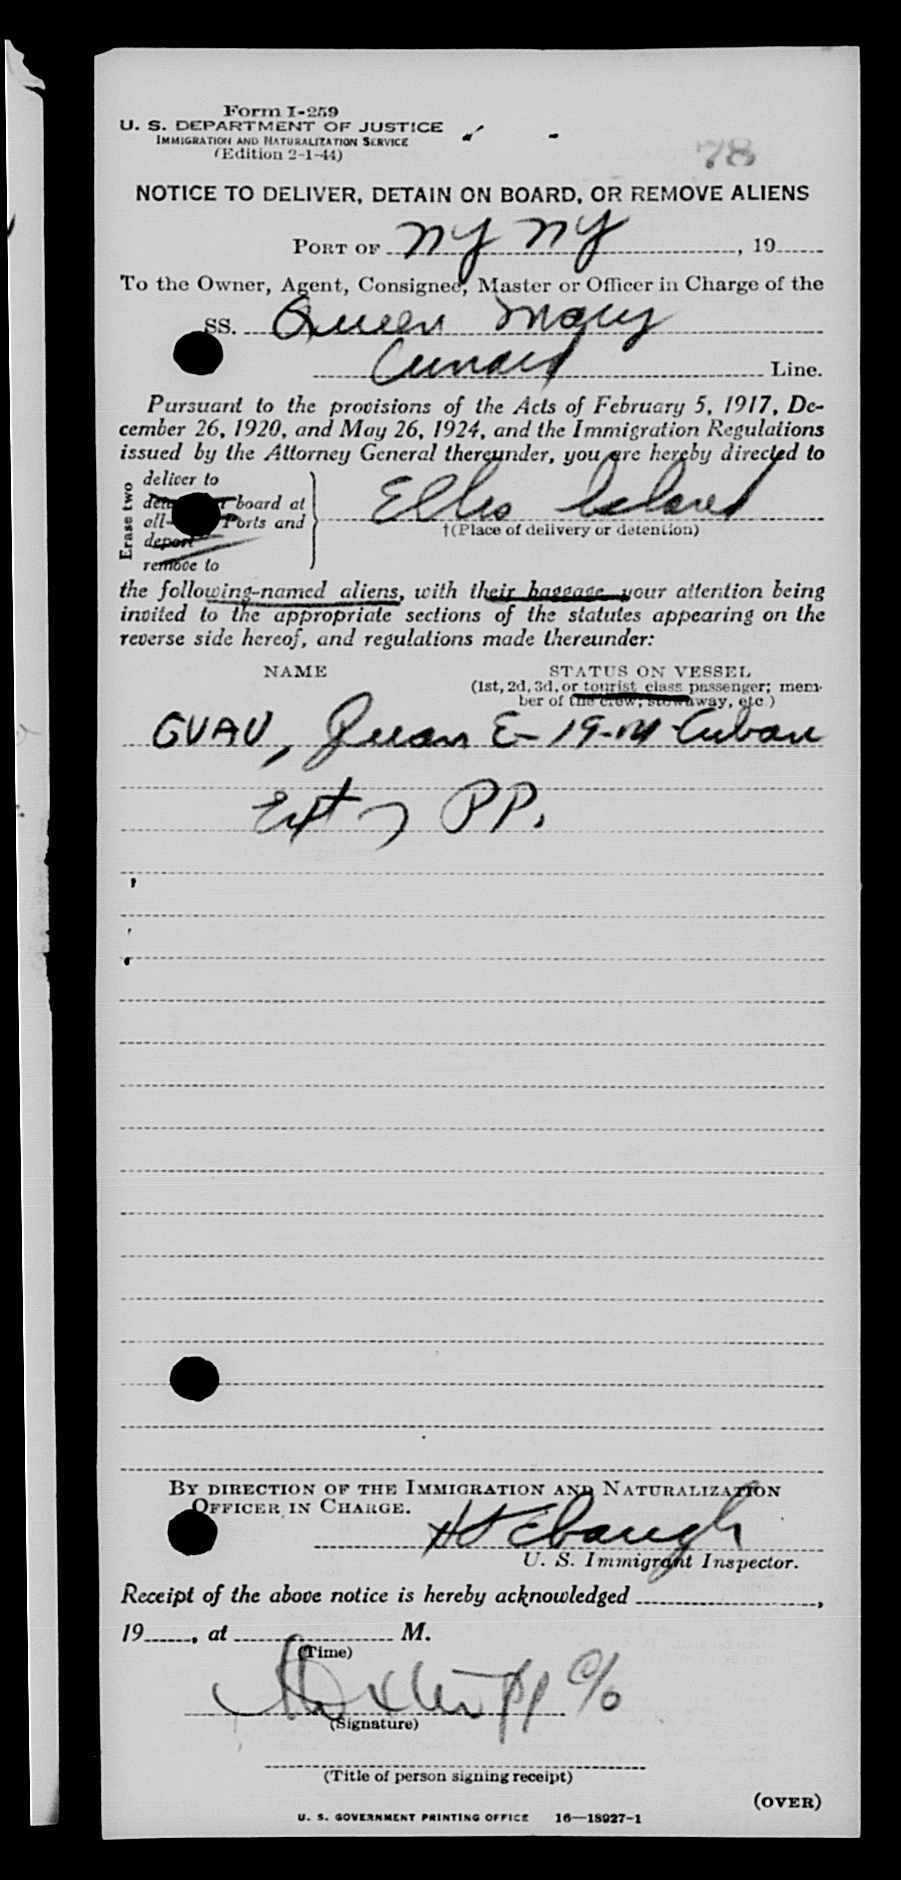 Form I-259
U. S. DEPARTMENT OF JUSTICE
IMMIGRATION AND NATURALIZATION SERVICE
(Edition 2-1-44)
78
NOTICE TO DELIVER, DETAIN ON BOARD, OR REMOVE ALIENS
PORT OF NY NY, 19
To the Owner, Agent, Consignee, Master or Officer in Charge of the
SS. Queen Mary
Cunard Line.
Pursuant to the provisions of the Acts of February 5, 1917, De-
cember 26, 1920, and May 26, 1924, and the Immigration Regulations
issued by the Attorney General thereunder, you are hereby directed to
Erase two
deliver to
board at
all Ports and
deport
remove to
Ellis Island
†(Place of delivery or detention)
the following-named aliens, with their baggage, your attention being
invited to the appropriate sections of the statutes appearing on the
reverse side hereof, and regulations made thereunder:
NAME STATUS ON VESSEL
(1st, 2d, 3d, or tourist class passenger; mem-
ber of the crew; stowaway, etc.)
GUAU, Juan E- 19-M Cuban
Ext of PP.
BY DIRECTION OF THE IMMIGRATION AND NATURALIZATION
OFFICER IN CHARGE.
Ebaugh
U. S. Immigrant Inspector.
Receipt of the above notice is hereby acknowledged ,
19 , at M.
(Time)
(Signature)
(Title of person signing receipt)
(OVER)
U. S. GOVERNMENT PRINTING OFFICE 16—18927-1